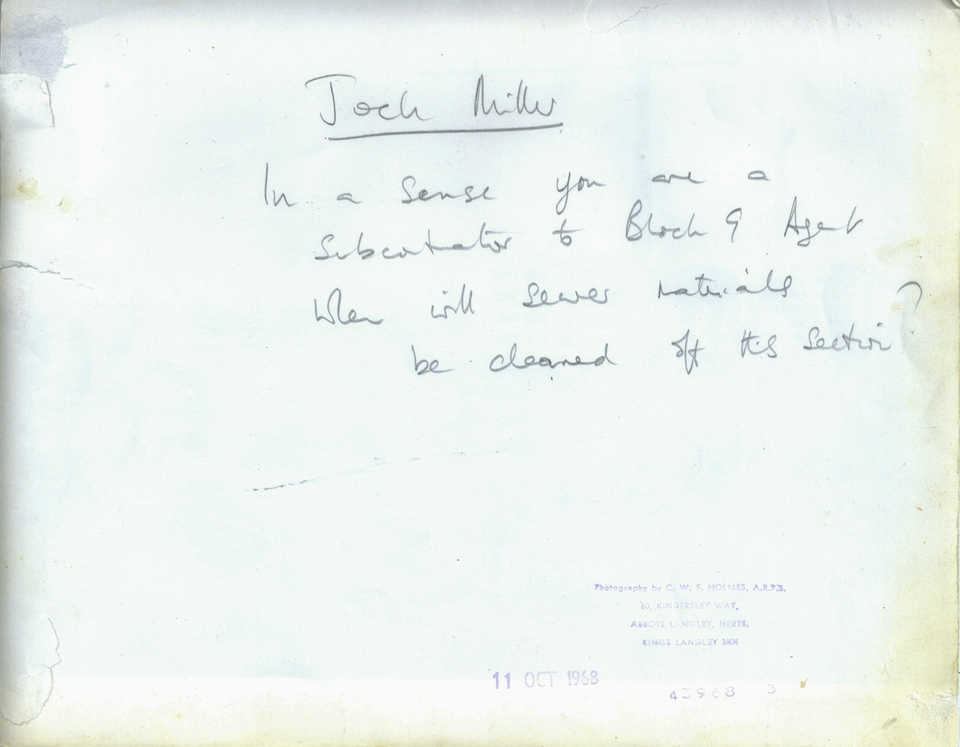 Jock Miller
In a sense you are a
Subcontrator to Block 9 Agent
When will sewer materials
be cleared off this section ?
Photography by C. W. F. HOLMES, A.R.P.S.
30, KINDERSLEY WAY,
ABBOTS LANGLEY, HERTS.
KINGS LANGLEY
11 OCT 1968
43968 3